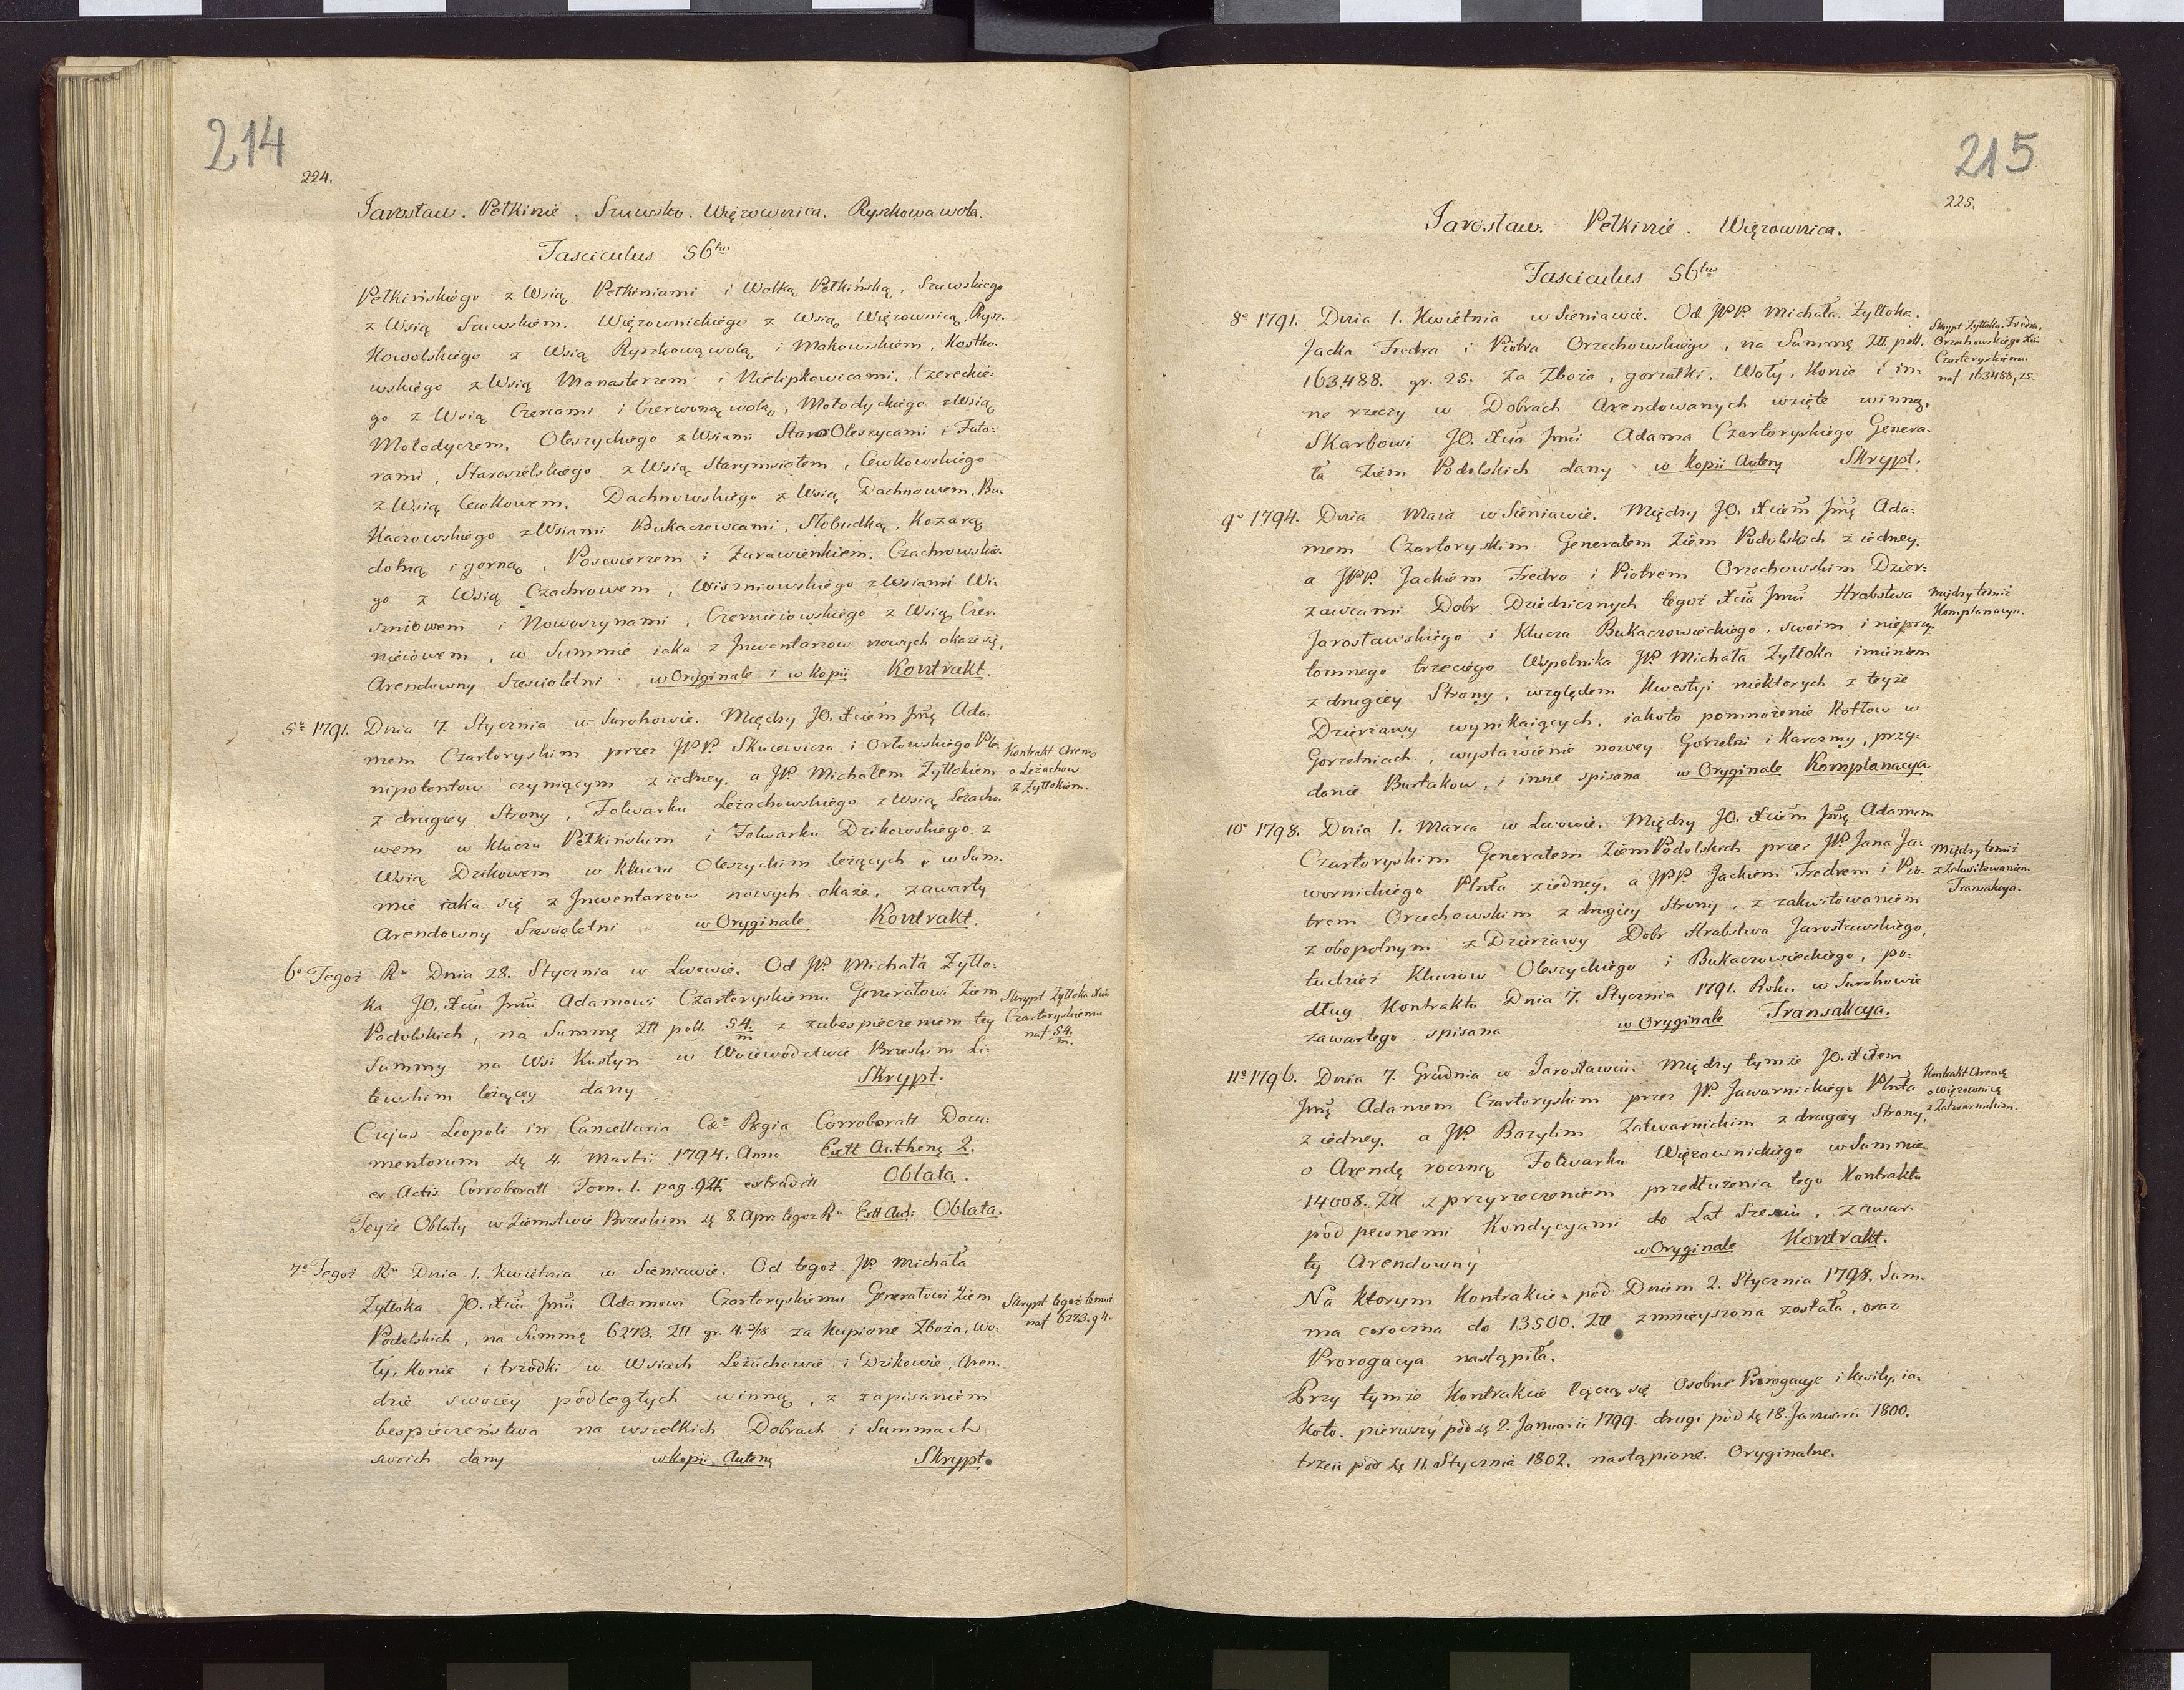 214
224.
Jarosław. Pełkinie. Szuwsko. Więzownica. Ryszkowawola.
Fasciculus 56tus
Pełkińskiego z Wsią Pełkiniami i Wolką Pełkińską, Szuwskiego
z Wsią Szuwskiem. Więzownickiego z Wsią Więzownicą, Rysz-
kowolskiego z Wsią Ryszkowąwolą i Makowiskiem, Kostko-
wskiego z Wsią Monasterzem i Nielipkowicami, Czereckie-
go z Wsią Czercami i Czerwonąwolą, Mołodyckiego z Wsią
Mołodyczem, Oleszyckiego z Wsiami Staro Oleszycami i Futo-
rami, Starosielskiego z Wsią Starymsiołem, Cewkowskiego
z Wsią Cewkowem, Dachnowskiego z Wsią Dachnowem, Bu-
kaczowskiego z Wsiami Bukaczowcami, Słobudką, Kozarą
dolną i gorną, Poswierzem i Zurawienkiem, Czachrowskie-
go z Wsią Czachrowem, Wiszniowskiego z Wsiami Wi-
szniowem i Nowoszynami, Czerniejowskiego z Wsią Czer-
niejowem, w Summie iaka z Inwentarzow nowych okaże się,
Arendowny Szescioletni w Oryginale i w kopii Kontrakt.
5o 1791. Dnia 7. Stycznia w Surohowie. Między JO. Xciem Jmę Ada-
mem Czartoryskim przez JPP. Skucewicza i Orłowskiego Ple-
nipotentow czyniącym z iedney, a JP. Michałem Żyttokiem
z drugiey Strony, Folwarku Leżachowskiego z Wsią Leżacho-
wem w Kluczu Pełkińskim i Folwarku Dzikowskiego z
Wsią Dzikowem w Kluczu Oleszyckim leżących, w Sum-
mie iaka się z Inwentarzow nowych okaże, zawarty
Arendowny Szescioletni w Oryginale Kontrakt.
Kontrakt Aren.
o Leżachow
z Żyttokiem.
6o Tegoż Ru Dnia 28. Stycznia w Lwowie. Od JP. Michała Żytto-
ka JO. Xciu Jmci Adamowi Czartoryskiemu Generałowi Ziem
Podolskich, na Summę Złł poll. 54. m z zabespieczeniem tey
Summy na Wsi Kustyn w Woiewodztwie Brzeskim Li-
tewskim leżącey dany Skrypt.
Skrypt Żyttoka Xciu
Czartoryskiemu
na f 54. m.
Cujus Leopoli in Cancellaria Cæo Regia Corroboratt Docu-
mentorum dę 4. Martii 1794. Anno Extt Authenę 2.
ex Actis Corroboratt Tom. 1. pag. 924. extraditt Oblata.
Teyże Oblaty w Ziemstwie Brzeskim dę 8. Apr. tegoz Ru Extt Aut: Oblata.
7o Tegoż Ru Dnia 1. Kwietnia w Sieniawie. Od tegoż JP. Michała
Żyttoka JO. Xciu Jmci Adamowi Czartoryskiemu Generałowi Ziem
Podolskich, na Summę 6273. Złł gr. 4. 3/18 za kupione Zboża, Wo-
ły, Konie i trzodki w Wsiach Leżachowie i Dzikowie, Aren-
dzie swoiey podległych winną, z zapisaniem
bespieczeństwa na wszelkich Dobrach i Summach
swoich dany w kopii Autenę Skrypt.
Skrypt tegoż temuż
na f 6273. g 4.
215
225.
Jarosław. Pełkinie. Więzownica.
Fasciculus 56tus
8o 1791. Dnia 1. Kwietnia w Sieniawie. Od JPP. Michała Żyttoka.
Jacka Fredra i Piotra Orzechowskiego, na Summę Złł poll.
163,488. gr. 25. Za Zboża, gorzałki, Woły, Konie i in-
ne rzeczy w Dobrach Arendowanych wzięte winną,
Skarbowi JO. Xcia Jmci Adama Czartoryskiego Genera-
ła Ziem Podolskich dany w Kopii Autenę Skrypt.
Skrypt Żyttoka, Fredra,
Orzechowskiego Xciu
Czartoryskiemu
na f 163488, 25.
9o 1794. Dnia Maia w Sieniawie. Między JO. Xciem Jmę Ada-
mem Czartoryskim Generałem Ziem Podolskich z iedney,
a JPP. Jackiem Fredro i Piotrem Orzechowskim Dzier-
zawcami Dobr Dziedzicznych tegoż Xcia Jmci Hrabstwa
Jarosławskiego i Klucza Bukaczowieckiego, swoim i nieprzy-
tomnego trzeciego Wspolnika JP. Michała Żyttoka imieniem
z drugiey Strony, względem Kwestyi niektorych z teyże
Dzierżawy wynikaiących, iakoto pomnożenie Kotłow w
Gorzelniach, wystawienie nowey Gorzelni i Karczmy, przy-
danie Burłakow, i inne spisana w Oryginale Komplanacya
Między temiż
Komplanacya.
10o 1798. Dnia 1. Marca w Lwowie. Między JO. Xciem Jmę Adamem
Czartoryskim Generałem Ziem Podolskich przez JP. Jana Ja-
wornickiego Plnta z iedney, a JPP. Jackiem Fredrem i Pio-
trem Orzechowskim z drugiey Strony, z zakwitowaniem
z obopolnym z Dzierżawy Dobr Hrabstwa Jarosławskiego,
tudzież Kluczow Oleszyckiego i Bukaczowieckiego, po-
dług Kontraktu Dnia 7. Stycznia 1791. Roku w Surohowie
zawartego spisana w Oryginale Transakcya.
Między temiż
z Zakwitowaniem
Transakcya.
11o 1796. Dnia 7. Grudnia w Jarosławiu. Między tymże JO. Xciem
Jmę Adamem Czartoryskim przez JP. Jawornickiego Plnta
z iedney, a JP. Bazylim Zatwarnickim z drugiey Strony,
o Arendę roczną Folwarku Więzownickiego w Summie
14008. Złł z przyrzeczeniem przedłużenia tego Kontraktu
pod pewnemi Kondycyami do Lat Szesciu, zawar-
ty Arendowny w Oryginale Kontrakt.
Kontrakt Arenę
o Więzownicę
z Zatwarnickim.
Na ktorym Kontrakcie pod Dniem 2. Stycznia 1798. Sum-
ma coroczna do 13500. Złł zmnieyszona została, oraz
Prorogacya nastąpiła.
Przy tymże Kontrakcie łączą się Osobne Prorogacye i kwity, ia-
koto. pierwszy pod dę 2. Januarii 1799. drugi pod dę 18. Januarii 1800.
trzeci pod dę 11. Stycznia 1802. nastąpione. Oryginalne.